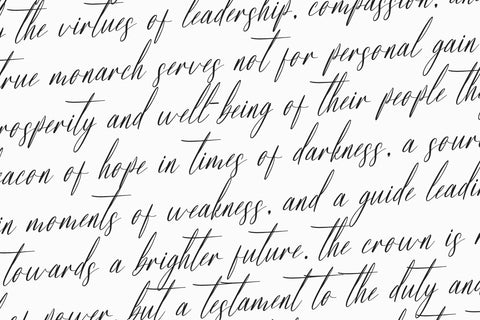 the virtues of leadership. compassion. an
true monarch serves not for personal gain
rosperity and well-being of their people th
eacon of hope in times of darkness. a sour
in moments of weakness. and a guide leadi
towards a brighter future. the crown is n
of power. but a testament to the duty and